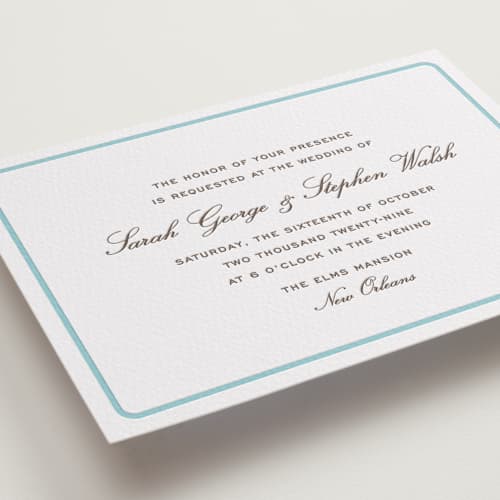 THE HONOR OF YOUR PRESENCE
IS REQUESTED AT THE WEDDING OF
Sarah George & Stephen Walsh
SATURDAY, THE SIXTEENTH OF OCTOBER
TWO THOUSAND TWENTY-NINE
AT 6 O'CLOCK IN THE EVENING
THE ELMS MANSION
New Orleans